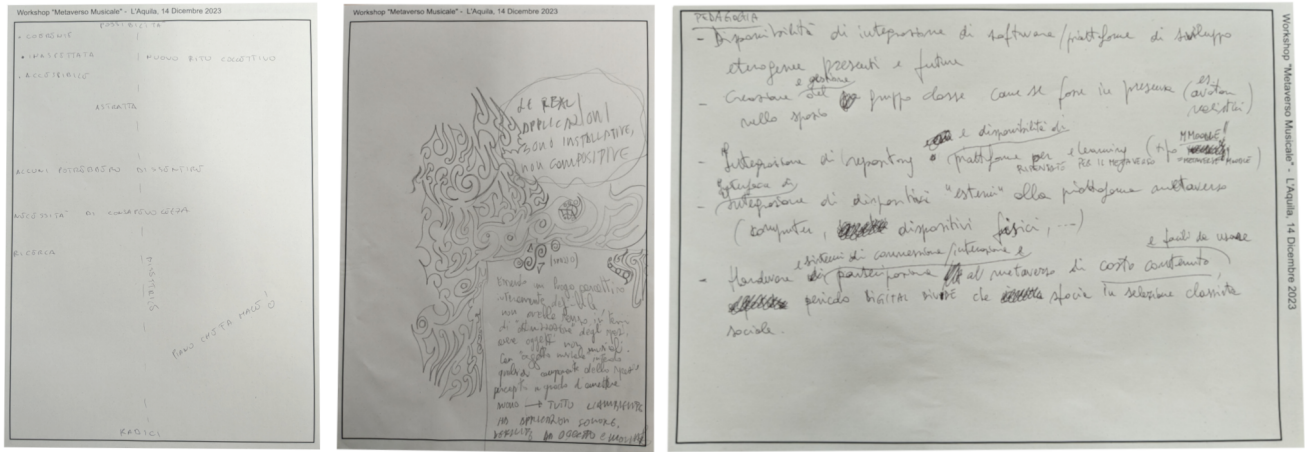 Workshop "Metaverso Musicale" - L'Aquila, 14 Dicembre 2023
POSSIBILITÀ
• COERENTE
• INASPETTATA
NUOVO RITO COLLETTIVO
• ACCESSIBILE
ASTRATTA
ALCUNI POTREBBERO DISSENTIRE
NECESSITÀ DI CONSAPEVOLEZZA
RICERCA
RADICI
Workshop "Metaverso Musicale" - L'Aquila, 14 Dicembre 2023
LE REALI
APPLICAZIONI
SONO INSTALLATIVE,
NON COMPOSITIVE
Essendo un luogo
non
di degli spazi
avere oggetti non musicali.
Con "oggetto musicale" intendo
qualsiasi componente dello spazio
percepito in grado di emettere
suono → TUTTO L'AMBIENTE
HA SONORE,
DA OGGETTO
Workshop "Metaverso Musicale" - L'Aquila, 14 Dicembre 2023
PEDAGOGIA
- Disponibilità di integrazione di software/piattaforme di sviluppo
eterogenee presenti e future
- Creazione e gestione del gruppo classe come se fosse in presenza (es. avatar
nello spazio realistici)
- Integrazione di repository e disponibilità di
piattaforme per elearning (tipo MOODLE
PER IL METAVERSO
- Integrazione di dispositivi "esterni" alla piattaforma metaverso
(computer, dispositivi fisici, ...)
- Hardware e sistemi di connessione/interazione e
partecipazione al metaverso di costo contenuto e facili da usare
pericolo DIGITAL DIVIDE che sfocia in selezione classista
sociale.